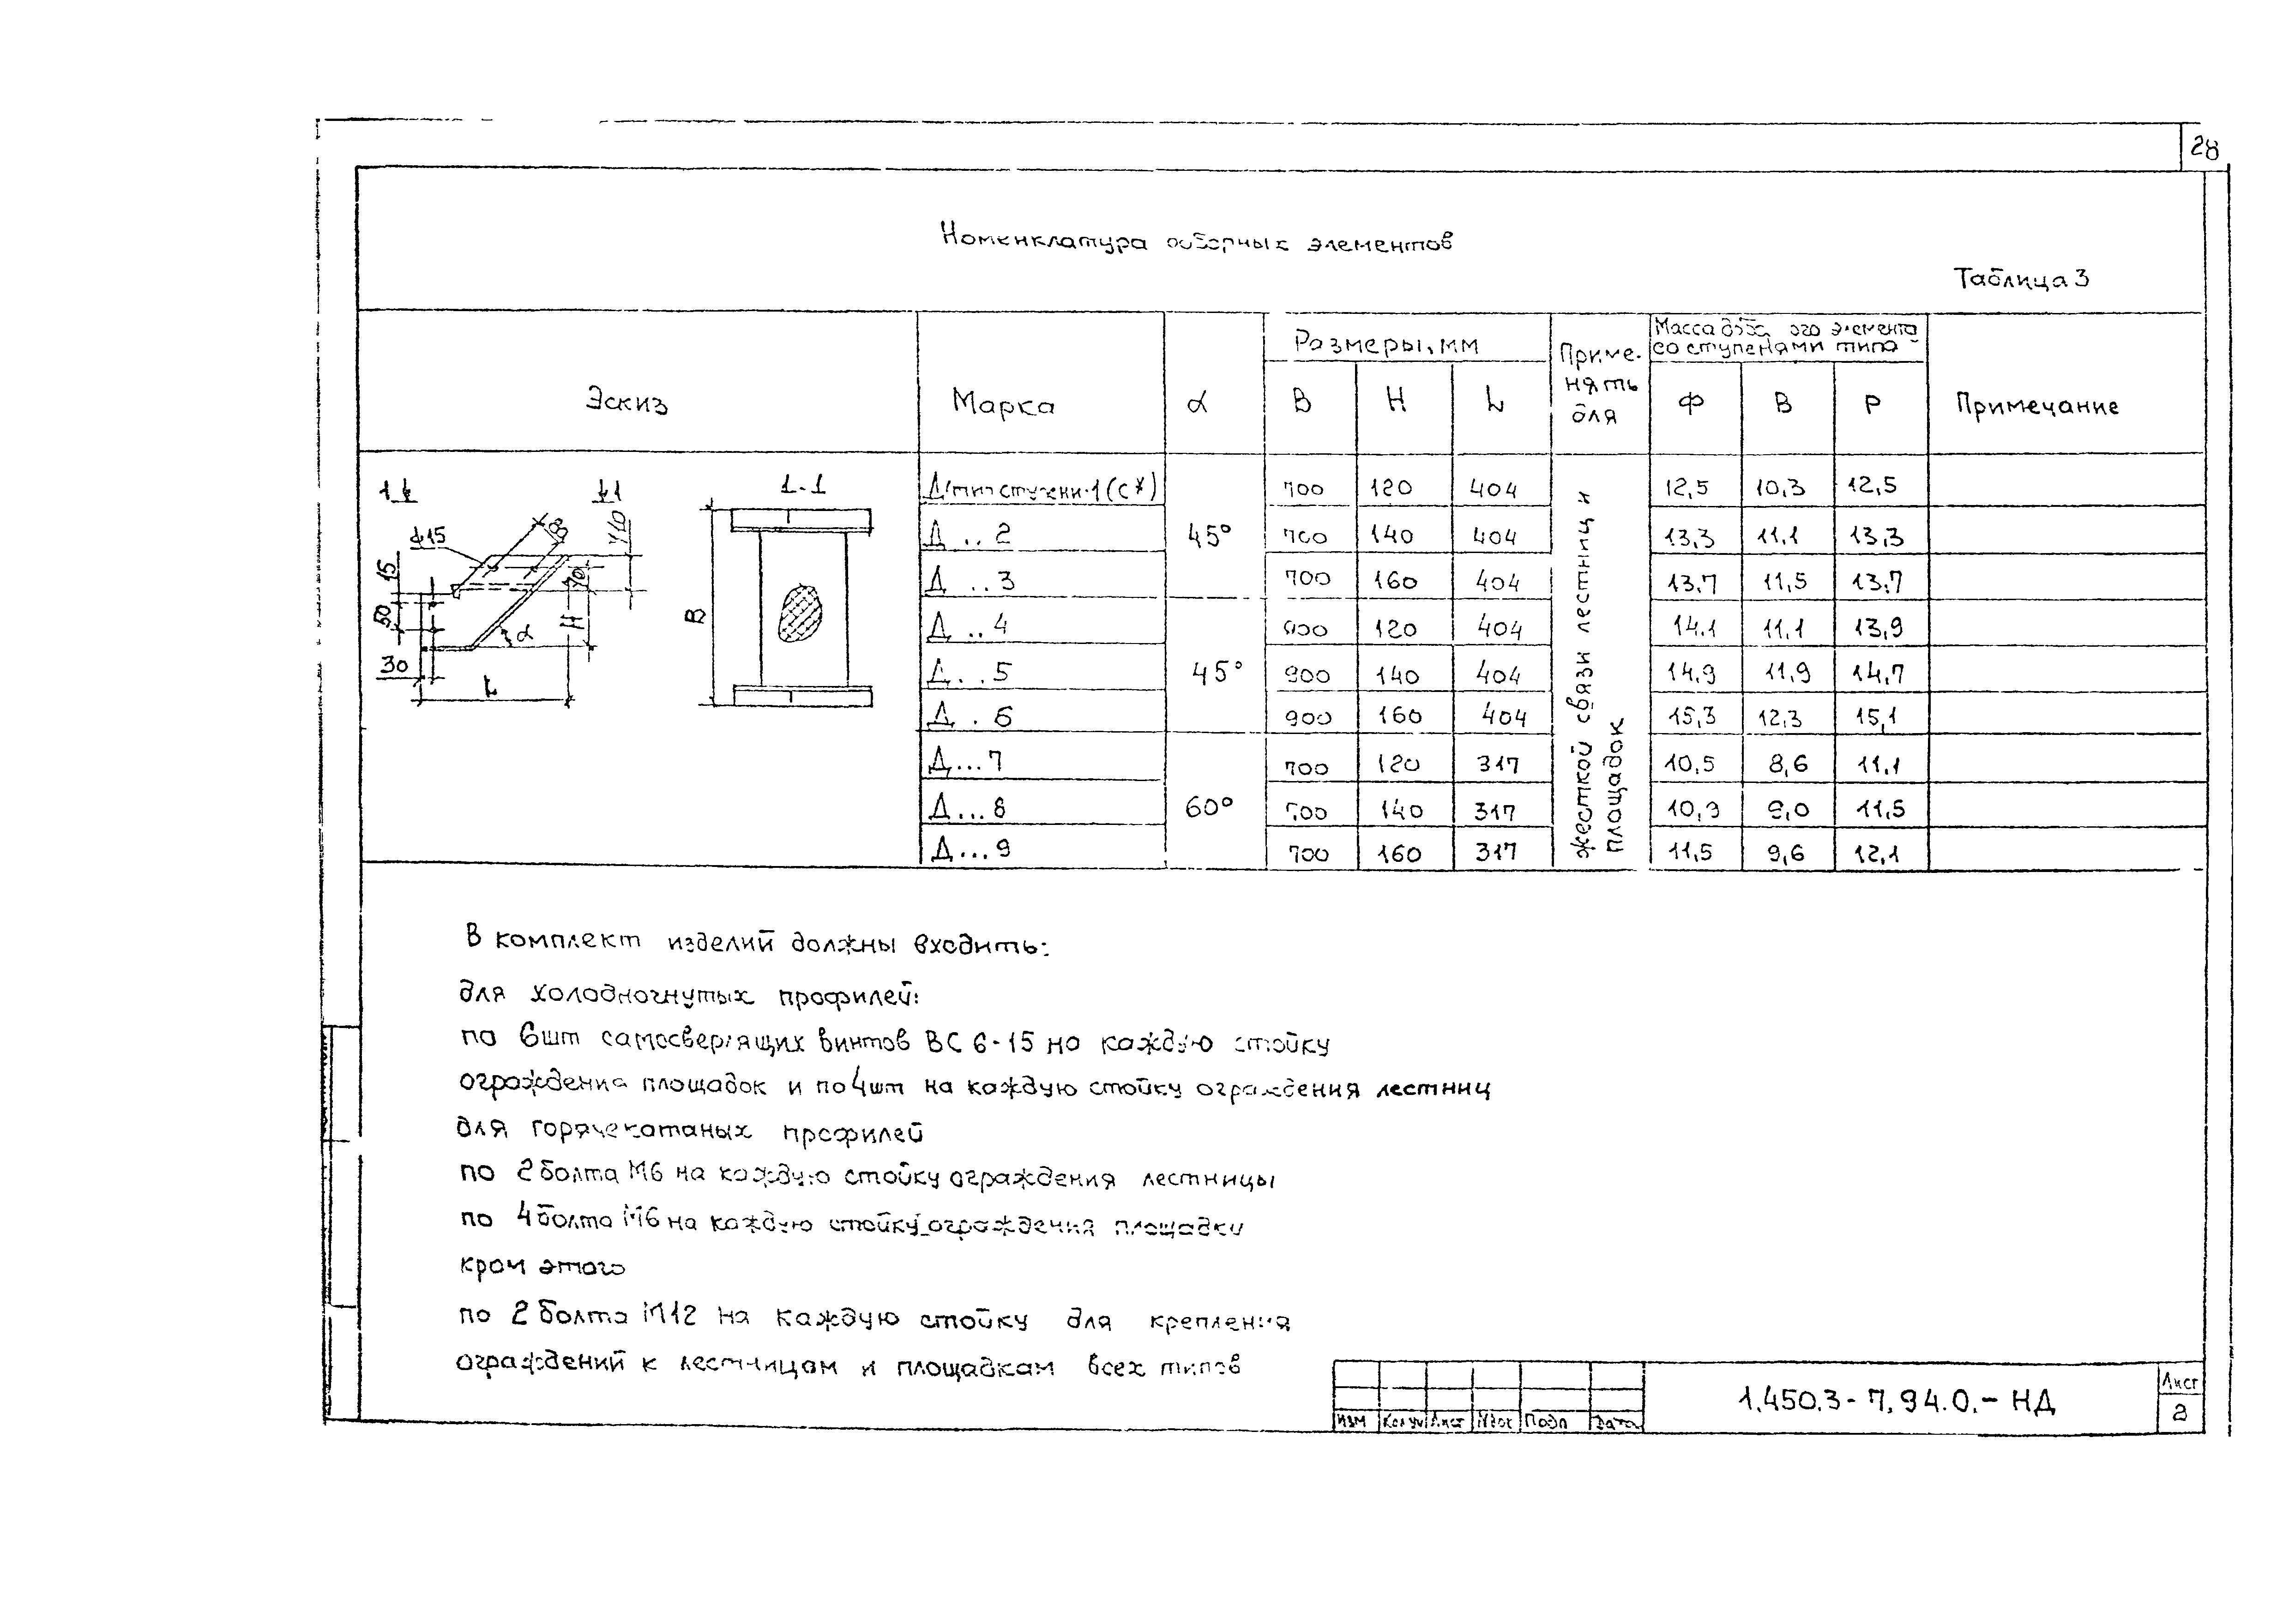 28
Номенклатура доборных элементов
Таблица 3
Эскиз
Марка
α
Размеры, мм
B
H
L
Приме-
нять
для
Масса элемента
со ступенями типа
Ф
В
Р
Примечание
1
1
1-1
ф15
15
50
30
L
α
H
70
140
B
Д(тип ступени-1(с*) 700 120 404 12,5 10,3 12,5
Д .. 2 45° 700 140 404 13,3 11,1 13,3
Д ..3 700 160 404 13,7 11,5 13,7
Д ..4 900 120 404 14.1 11,1 13,9
Д...5 45° 900 140 404 14,9 11,9 14,7
Д . 6 900 160 404 15,3 12,3 15,1
Д...7 700 120 317 10,5 8,6 11,1
Д...8 60° 700 140 317 10,9 9,0 11,5
Д...9 700 160 317 11,5 9,6 12,1
жесткой связи лестниц и
площадок
В комплект изделий должны входить:
для холодногнутых профилей:
по 6шт самосверлящих винтов ВС 6-15 на каждую стойку
ограждения площадок и по 4шт на каждую стойку ограждения лестниц
для горячекатаных профилей
по 2 болта М6 на каждую стойку ограждения лестницы
по 4 болта М6 на каждую стойку ограждения площадки
кром этого
по 2 болта М12 на каждую стойку для крепления
ограждений к лестницам и площадкам всех типов
Изм Кол.уч Лист Nдок Подп Дата
1.450.3-7.94.0.-НД
Лист
2